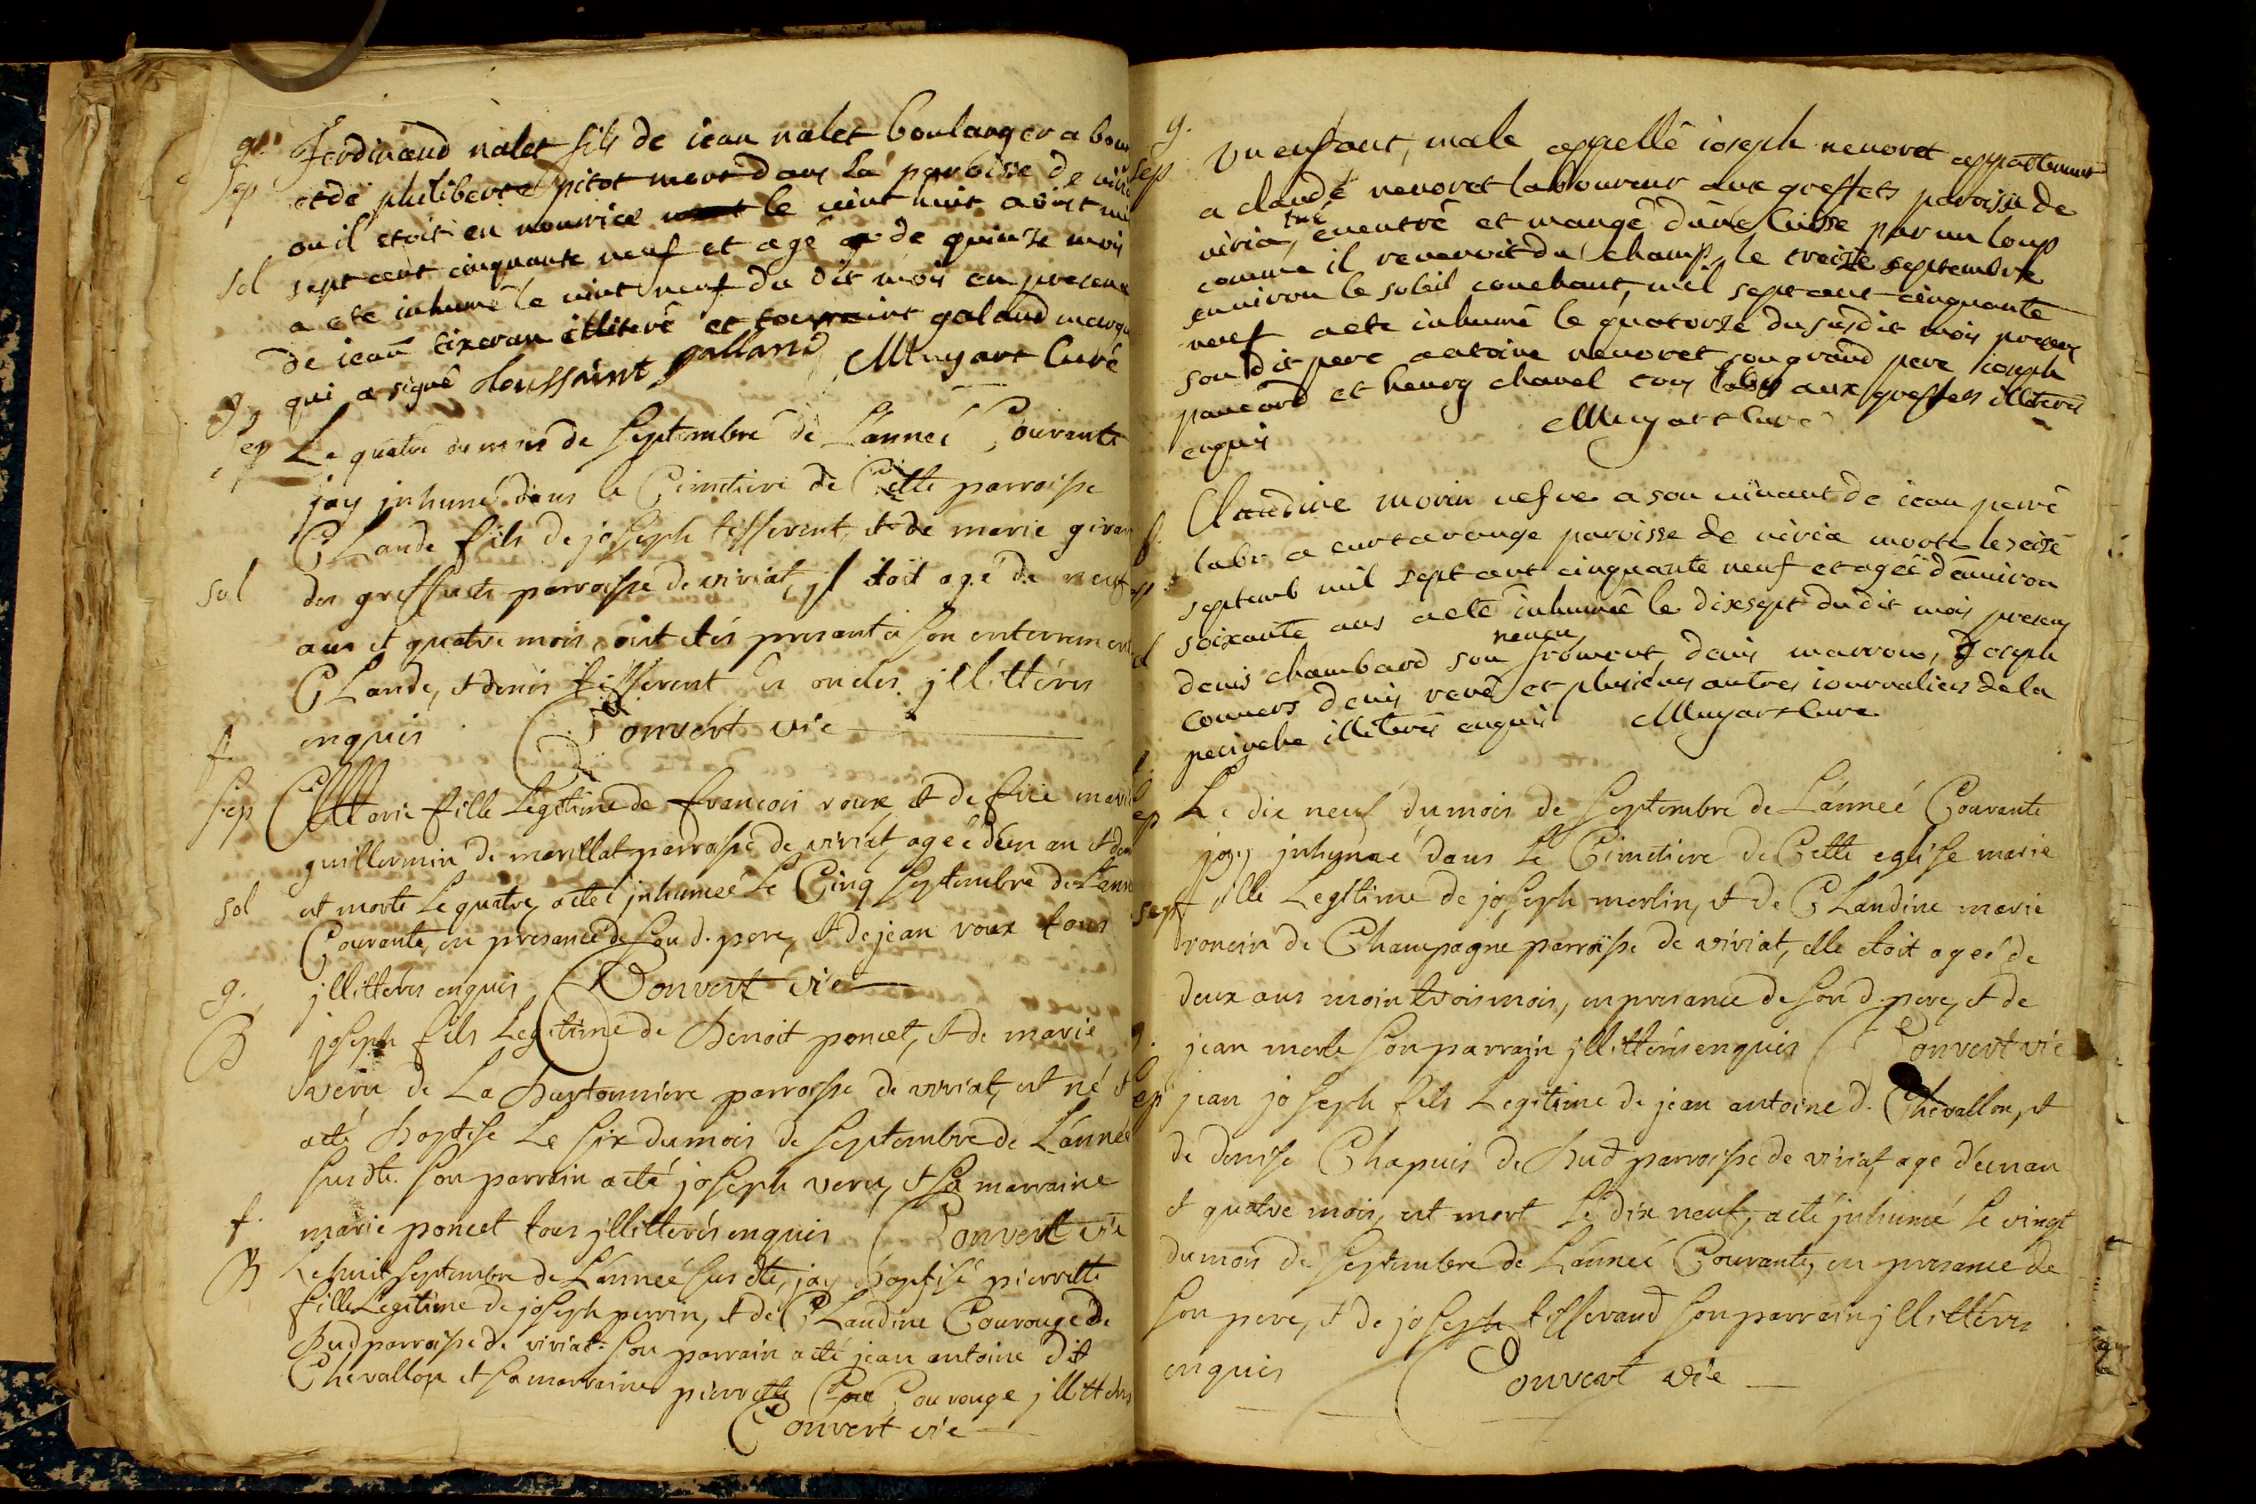 g. Ferdinand nalet fils de iean nalet boulanger a bour
sep et de philiberte pitot mort dans la paroisse de viria
ou il etoit en nourrice le vint huit aoust mil
sol sept cent cinquante neuf et agé de quinze mois
a ete inhumé le vint neuf du dit mois en presence
de iean tixeran illiteré et toussaint galand marqu
qui a signé Toussaint galland Muyart Curé
g
sep Le quatre du mois de septembre de L'anneé Courante
jay jnhumé dans le Cimetiere de Cette parroisse
CLaude fils de joseph tisserent, et de marie girar
sol des greffets parroisse de viriat, jl étoit agé de neuf
ans et quatre mois, ont etés presant a son enterrement
CLaude, et denis tisserent ses oncles jllittérés
enquis Convért vic
f.
sep Marie fille Legitime de francois roux et de feüe marie
guillermin de marillat parroisse de viriat, ageé d'un an et demi
sol est morte le quatre, a eté jnhumeé le Cinq septembre de L'anné
Courante, en presance de son d. pere, et de jean roux tous
jllitterés enquis Convert vic
g.
B joseph fils Legitime de Benoit poncet, et de marie
veru de La parroisse de viriat, est né et
a eté baptisé Le six du mois de septembre de L'anneé
susdte. son parrain a eté joseph veru, et sa marraine
f. marie poncet tous jllitterés enquis Convert vic
B Le huit septembre de L'anneé susdte, jay baptisé pierrette
fille Legitime de joseph perrin, et de CLaudine Courouge de
Bud parroisse de viriat. son parrain a eté jean antoine dit
Chevallon et sa marraine pierrette Courouge jllitterés
Convert vic
g.
sep Un enfant, male appellé ioseph nevoret appartenant
a claude nevoret laboureur aux greffets paroisse de
viria, tué éventré et mangé d'une cuisse par un loup
comme il revenoit du champ, le treize septembre
environ le soleil couchant, mil sept cent cinquante
neuf a ete inhumé le quatorze du susdit mois presens
son dit pere antoine nevoret son grand pere ioseph
pancard et henry chanel tous labrs aux greffets illiterés
enquis Muyart Curé
f. Claudine morin vefve a son vivant de iean perré
labr a curtarouge paroisse de viria morte le seize
sep septemb mil sept cent cinquante neuf et agée d'environ
soixante ans a ete inhumée le dixsept du dit mois presens
sol denis chambard son neveu froment, denis marron, Joseph
convers denis revé et plusieurs autres iournaliers de la
peniche illiterés enquis Muyart Curé
f
sep Le dix neuf du mois de septembre de L'anneé Courante
jay jnhumé dans Le Cimetiere de Cette eglise marie
sept fille Legitime de joseph merlin, et de CLaudine marie
roncin de Champagne parroisse de viriat, elle etoit ageé de
deux ans moin trois mois, en presance de son d. pere, et de
g. jean merle son parrain jllitterés enquis Convert vic
sep jean joseph fils Legitime de jean antoine d. Chevallon, et
de denise Chapuis de Bud parroisse de viriat, agé d'un an
et quatre mois, est mort le dix neuf, a eté jnhumé le vingt
du mois de septembre de L'anneé Courante, en presance de
son pere, et de joseph tisserand son parrain jllitterés
enquis Convert vic